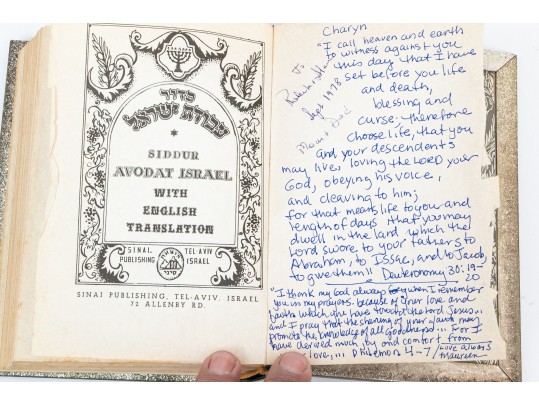 סדור
עבודת ישראל
SIDDUR
AVODAT ISRAEL
WITH
ENGLISH
TRANSLATION
SINAI
PUBLISHING
TEL-AVIV
ISRAEL
סיני
SINAI PUBLISHING, TEL-AVIV, ISRAEL
72 ALLENBY RD.
Charyn
"I call heaven and earth
to witness against you
this day, that I have
set before you life
and death,
blessing and
curse: therefore
choose life, that you
and your descendents
may live, loving the LORD your
God, obeying his voice,
and cleaving to him;
for that means life to you and
length of days, that you may
dwell in the land which the
Lord swore to your fathers to
Abraham, to Issac, and to Jacob,
to give them" Deuteronomy 30:19-
20
"I thank my God always when I remember
you in my prayers. because of your love and
faith which you have toward the Lord Jesus...
and I pray that the sharing of your faith may
promote the knowledge of all good ... For I
have derived much joy and comfort from
your love,... Philemon 4-7/ Love always
Maureen
To
Sept 1978
Mom & Dad